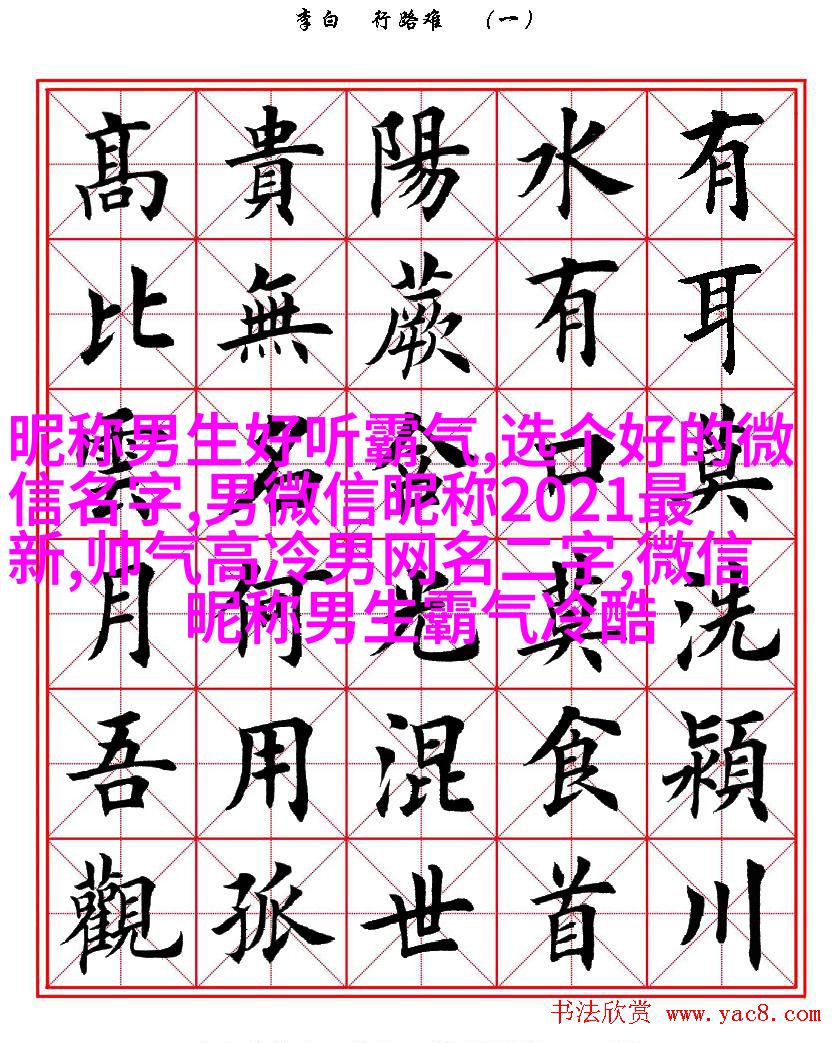 李白 行路难 （一）
有耳莫洗潁川
水有口莫食首
陽蕨含光混世
貴無名何用孤
髙比雲月吾觀
昵称男生好听霸气,选个好的微
信名字,男微信昵称2021最
新,帅气高冷男网名二字,微信
昵称男生霸气冷酷
书法欣赏 www.yac8.com